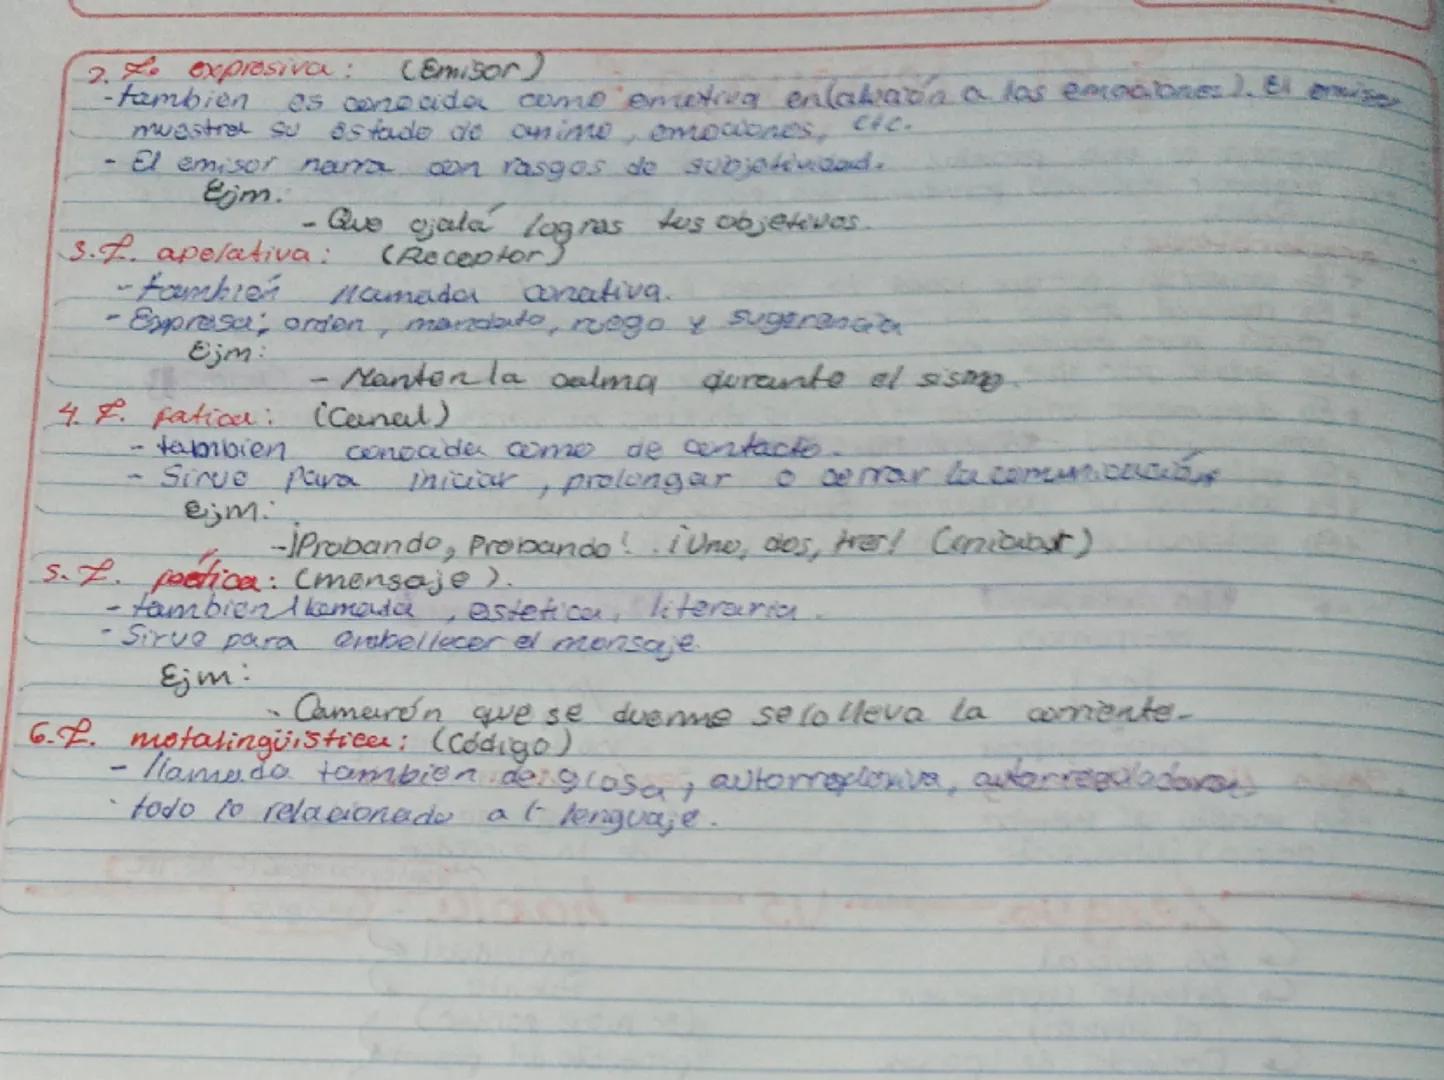 2. F. expresiva: (Emisor)
-tambien es conocida como emotiva en(alusión a las emociones). El emisor
muestra su estado de animo, emociones, etc.
- El emisor narra con rasgos de subjetividad.
Ejm:
- Que ojalá logras tus objetivos.
3. F. apelativa: (Receptor)
- también llamada conativa.
- Expresa: orden, mandato, ruego y sugerencia
Ejm:
- Manten la calma durante el sismo.
4. F. fatica: (Canal)
- tambien conocida como de contacto.
- Sirve para iniciar, prolongar o cerrar la comunicación
ejm:
-¡Probando, Probando! ¡Uno, dos, tres!
5. F. poética: (mensaje).
- tambien llamada, estetica, literaria.
- Sirve para embellecer el mensaje.
Ejm:
- Camarón que se duerme se lo lleva la corriente.
6. F. metalingüística: (Código)
- llamada tambien de glosa, autorreflexiva, autorreguladora
- todo lo relacionado al lenguaje.